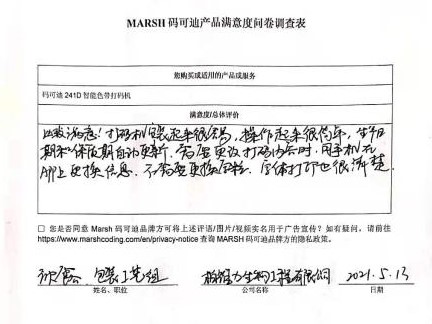 MARSH 码可迪产品满意度问卷调查表
您购买或适用的产品或服务
码可迪 241D 智能色带打码机
满意度/总体评价
比较满意！打码机安装起来很容易，操作起来很简单，生产日
期和保质期自动更新，需要更改打码内容时，用手机在
APP上更换信息，不需要更换字粒，字体打印也很清楚。
□ 您是否同意 Marsh 码可迪品牌方可将上述评语/图片/视频实名用于广告宣传？如有疑问，请前往
https://www.marshcoding.com/en/privacy-notice 查询 MARSH 码可迪品牌方的隐私政策。
包装工艺组 生物工程有限公司 2021.5.13
姓名、职位 公司名称 日期